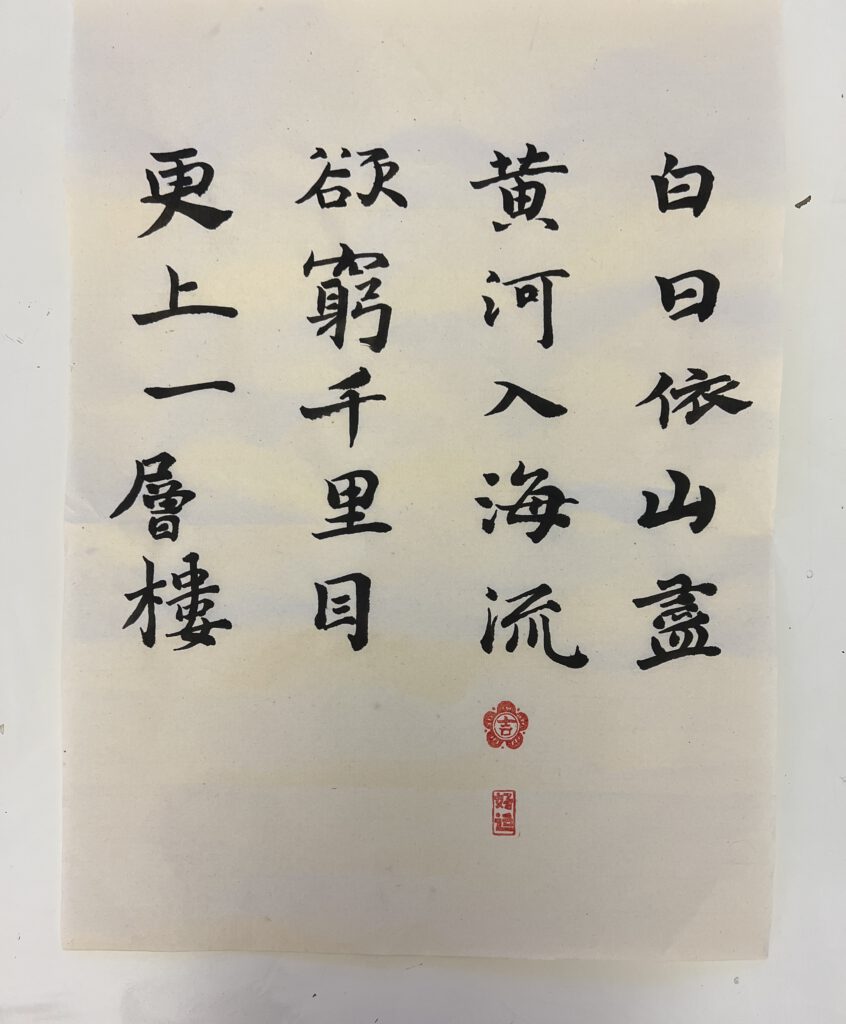 白日依山盡
黄河入海流
欲窮千里目
更上一層樓
吉
好运